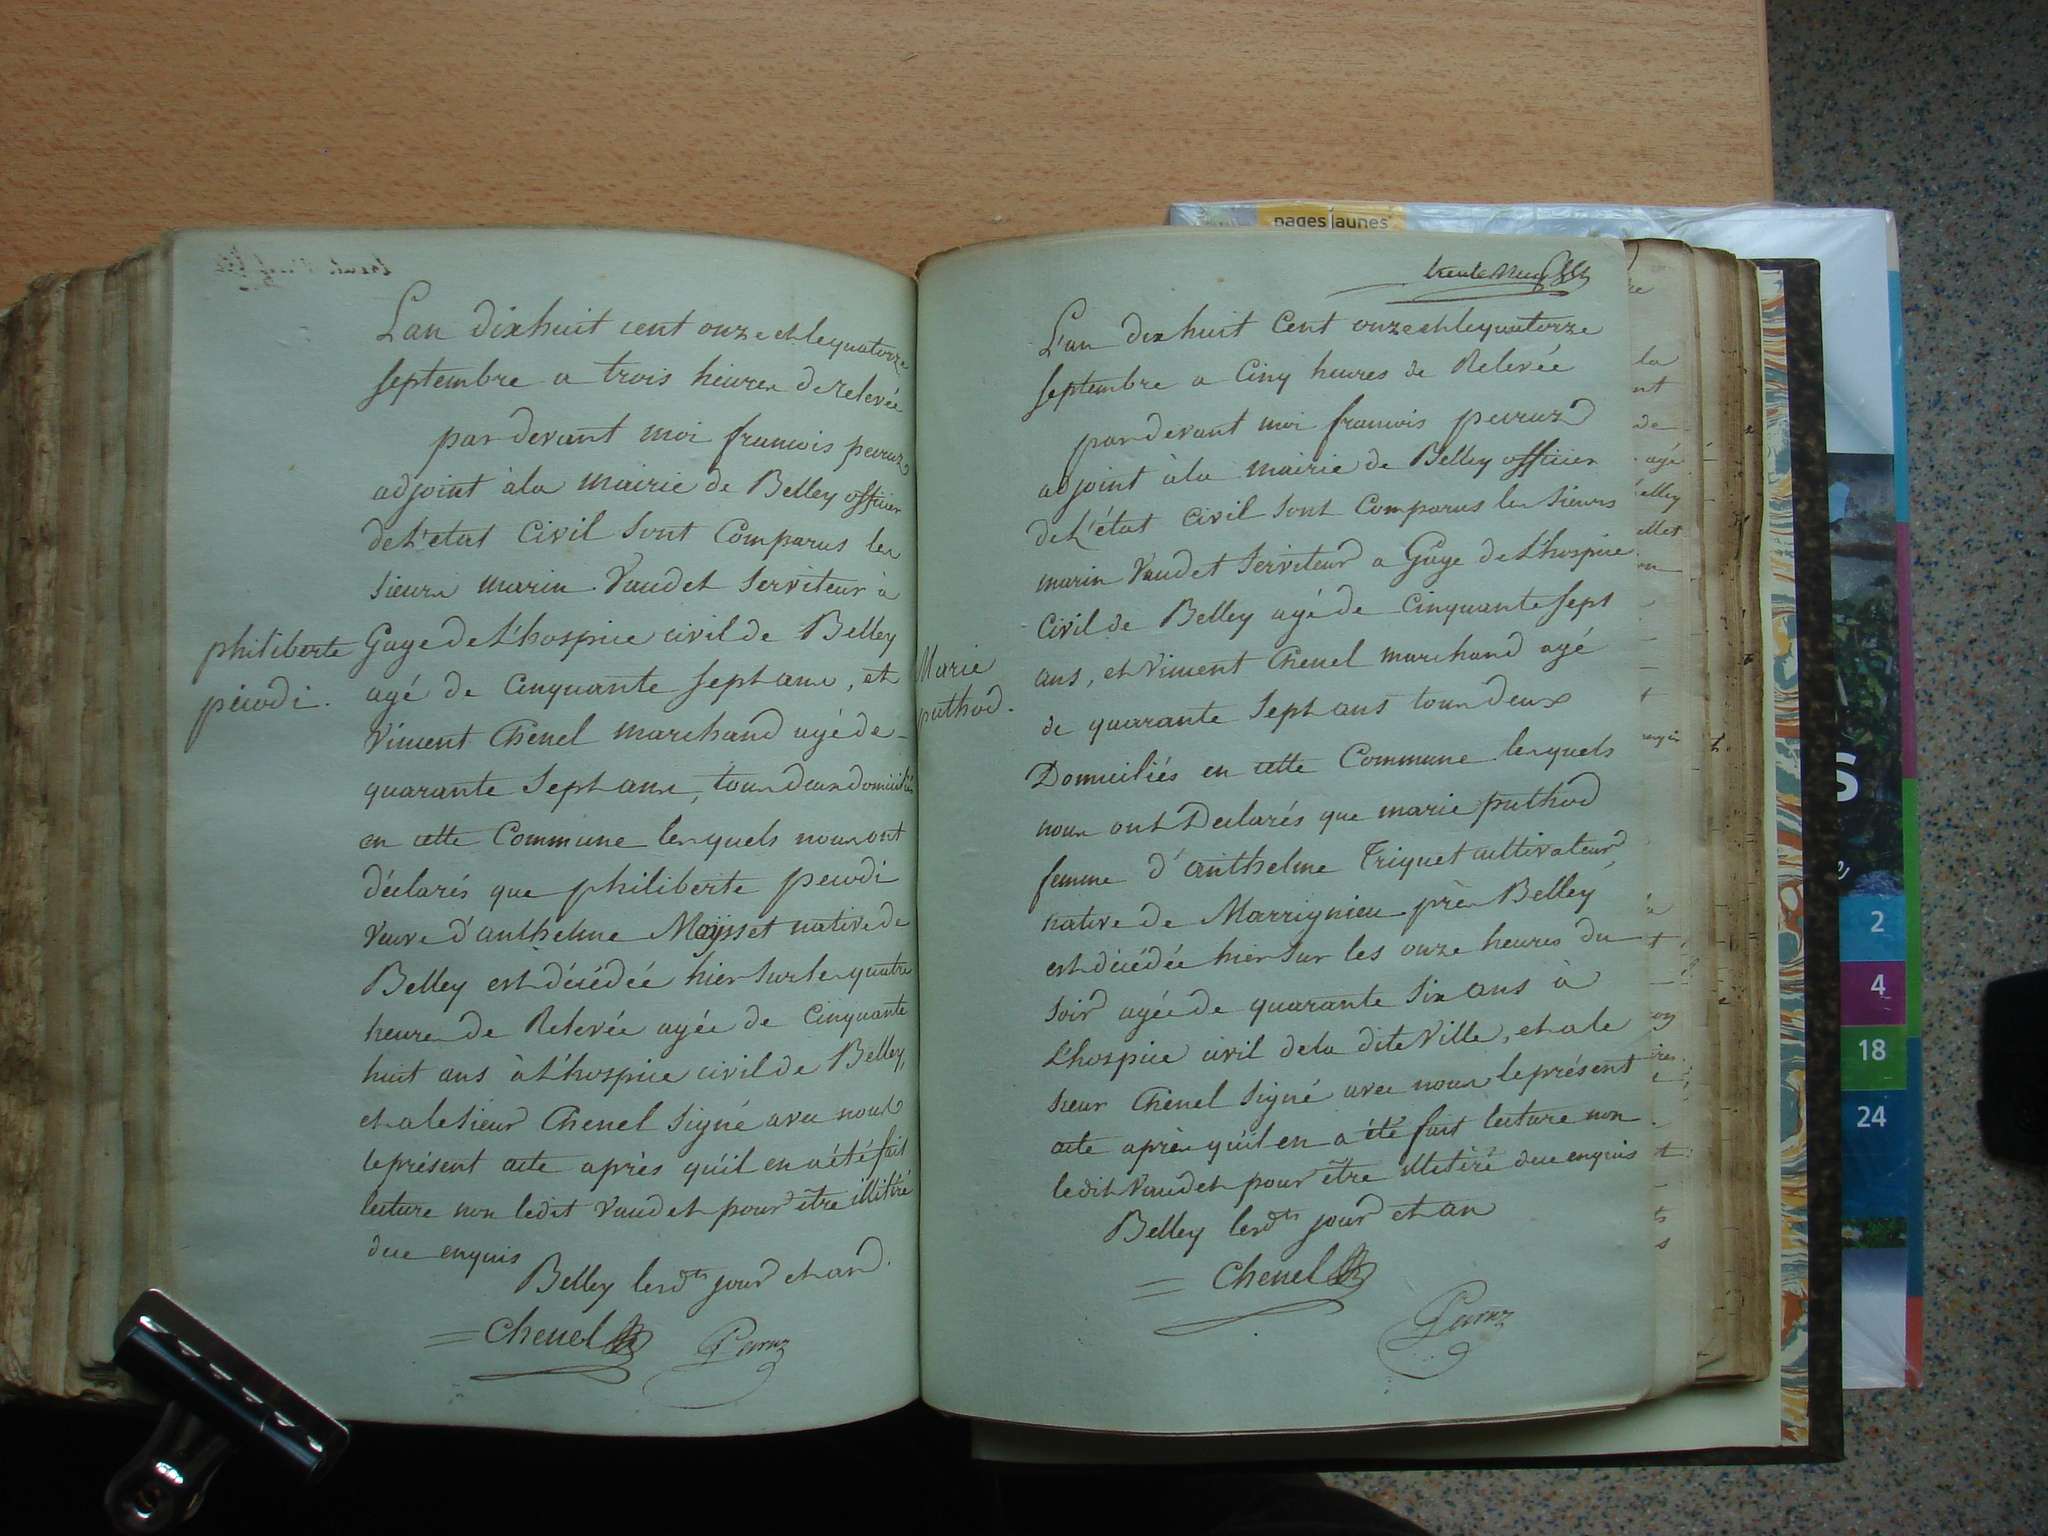 L'an dix huit cent onze et le quatorze
septembre a trois heures de relevée
par devant moi francois peuruz
adjoint à la mairie de Belley officier
de L'etat Civil sont Comparus les
sieurs marin Vaudet serviteur à
Gage de L'hospice civil de Belley
agé de cinquante sept ans, et
Vincent Chenel marchand agé de
quarante sept ans, tous deux domiciliés
en cette Commune lesquels nous ont
déclarés que philiberte
veuve d'anthelme native de
Belley est décédée hier sur les quatre
heures de Relevée agée de Cinquante
huit ans à L'hospice civil de Belley,
et a le sieur Chenel signé avec nous
le présent acte après qu'il en a été fait
lecture non ledit Vaudet pour être illitiré
due enquis
Belley les dts jour et an.
Chenel
philiberte
trente neuf
L'an dix huit Cent onze et le quatorze
septembre a Cinq heures de Relevée
par devant moi francois peuruz
adjoint à la mairie de Belley officier
de L'état civil sont Comparus les sieurs
marin Vaudet serviteur a Gage de L'hospice
Civil de Belley agé de cinquante sept
ans, et Vincent Chenel marchand agé
de quarante sept ans tous deux
Domiciliés en cette Commune lesquels
nous ont Déclarés que marie puthod
femme d'anthelme Triquet cultivateur,
native de Marrignieu près Belley
est décédée hier sur les onze heures du
soir agée de quarante six ans à
L'hospice civil de la dite Ville, et a le
sieur Chenel signé avec nous le présent
acte après qu'il en a été fait lecture non
ledit Vaudet pour être illitiré due enquis
Belley les dts jour et an
Chenel
Marie
puthod.
pages jaunes
2
4
18
24